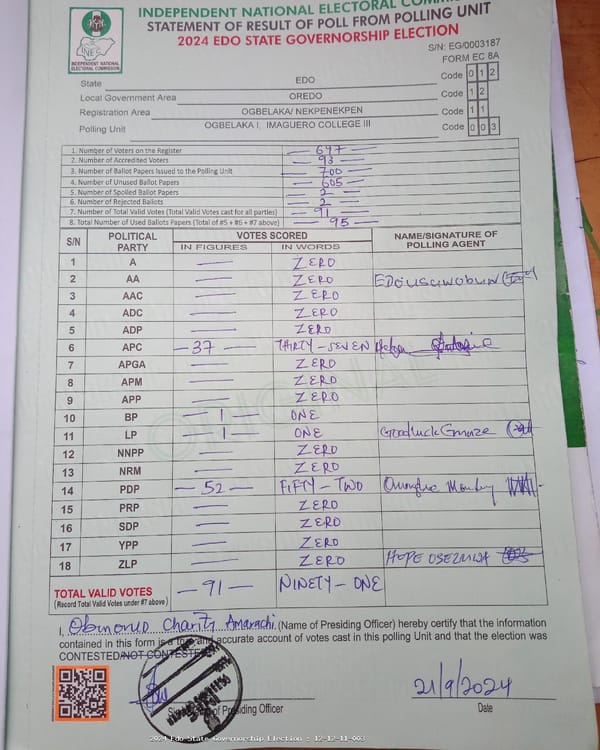 INDEPENDENT NATIONAL ELECTORAL COMM
STATEMENT OF RESULT OF POLL FROM POLLING UNIT
2024 EDO STATE GOVERNORSHIP ELECTION
INEC
INDEPENDENT NATIONAL ELECTORAL COMMISSION
S/N: EG/0003187
FORM EC 8A
State EDO Code 0 1 2
Local Government Area OREDO Code 1 2
Registration Area OGBELAKA/ NEKPENEKPEN Code 1 1
Polling Unit OGBELAKA I, IMAGUERO COLLEGE III Code 0 0 3
1. Number of Voters on the Register — 697 —
2. Number of Accredited Voters — 93 —
3. Number of Ballot Papers Issued to the Polling Unit — 700 —
4. Number of Unused Ballot Papers — 605 —
5. Number of Spoiled Ballot Papers — 2 —
6. Number of Rejected Ballots — 2 —
7. Number of Total Valid Votes (Total Valid Votes cast for all parties) — 91 —
8. Total Number of Used Ballots Papers (Total of #5 + #6 + #7 above) — 95 —
S/N POLITICAL PARTY VOTES SCORED NAME/SIGNATURE OF POLLING AGENT
IN FIGURES IN WORDS
1 A — ZERO
2 AA — ZERO
3 AAC — ZERO
4 ADC — ZERO
5 ADP — ZERO
6 APC — 37 — THIRTY-SEVEN
7 APGA — ZERO
8 APM — ZERO
9 APP — ZERO
10 BP — 1 — ONE
11 LP — 1 — ONE Goodluck
12 NNPP — ZERO
13 NRM — ZERO
14 PDP — 52 — FIFTY-TWO Monday
15 PRP — ZERO
16 SDP — ZERO
17 YPP — ZERO
18 ZLP — ZERO HOPE
TOTAL VALID VOTES — 91 — NINETY-ONE
(Record Total Valid Votes under #7 above)
I, Charity Amarachi (Name of Presiding Officer) hereby certify that the information
contained in this form is a true and accurate account of votes cast in this polling Unit and that the election was
CONTESTED/NOT CONTESTED
21/9/2024
Signature of Presiding Officer Date
2024 Edo State Governorship Election : 12-12-11-003